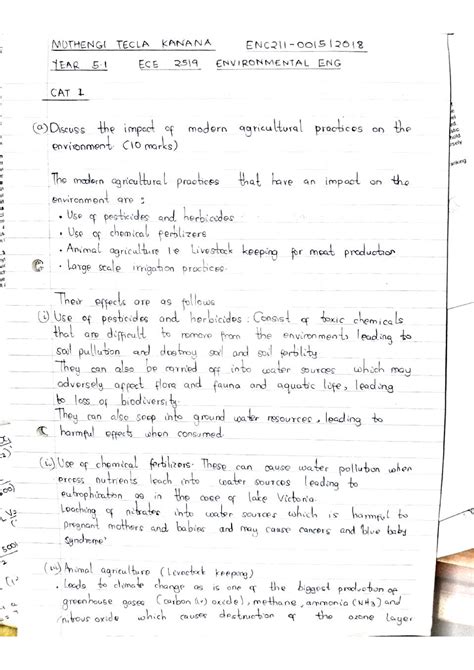 MUTHENGI TECLA KANANA ENC211-0015/2018
YEAR 5.1 ECE 2519 ENVIRONMENTAL ENG
CAT 1
(a) Discuss the impact of modern agricultural practices on the
environment (10 marks)
The modern agricultural practices that have an impact on the
environment are :
• Use of pesticides and herbicides
• Use of chemical fertilizers
• Animal agriculture i.e Livestock keeping for meat production
• Large scale irrigation practices.
Their effects are as follows
(i) Use of pesticides and herbicides : Consist of toxic chemicals
that are difficult to remove from the environments leading to
soil pollution and destroy soil and soil fertility
They can also be carried off into water sources which may
adversely affect flora and fauna and aquatic life, leading
to loss of biodiversity.
They can also seep into ground water resources, leading to
harmful effects when consumed.
Use of chemical fertilizers. These can cause water pollution when
excess nutrients leach into water sources leading to
eutrophication as in the case of lake Victoria.
Leaching of nitrates into water sources which is harmful to
pregnant mothers and babies and may cause cancers and 'blue baby
syndrome'
(iii) Animal agriculture (Livestock keeping)
• Leads to climate change as is one of the biggest production of
greenhouse gases (carbon (iv) oxide), methane, ammonia (NH3) and
nitrous oxide which causes destruction of the ozone layer